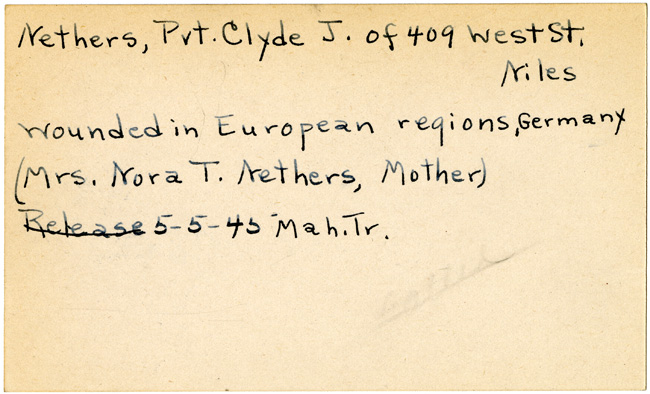 Nethers, Pvt. Clyde J. of 409 West St.
Niles
wounded in European regions, Germany
(Mrs. Nora T. Nethers, Mother)
Release 5-5-45 Mah. Tr.